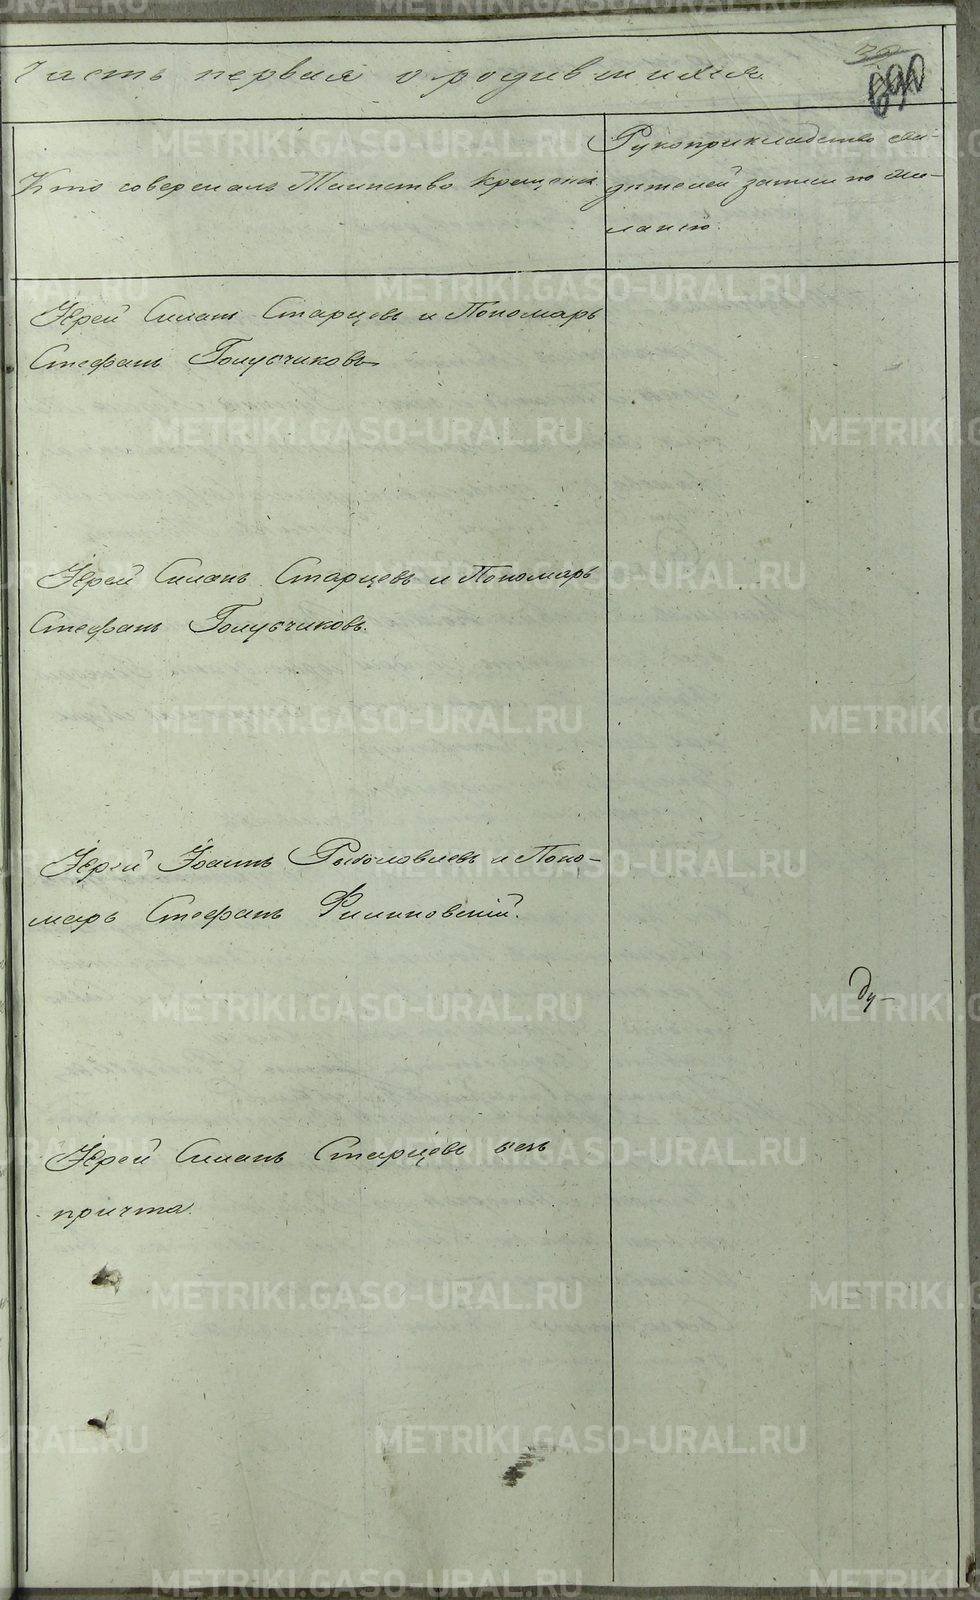 Часть первая о родившихся.
690
Кто совершалъ Таинство крещенія
Рукоприкладство сви-
дѣтелей записи по же-
ланію.
Іерей Силанъ Старцевъ и Пономарь
Стефанъ Голубчиковъ
Іерей Силанъ Старцевъ и Пономарь
Стефанъ Голубчиковъ.
Іерей Іоаннъ Рыболовлевъ и Поно-
марь Стефанъ Филиповскій.
Ду-
Іерей Силанъ Старцевъ безъ
причта.
METRIKI.GASO-URAL.RU